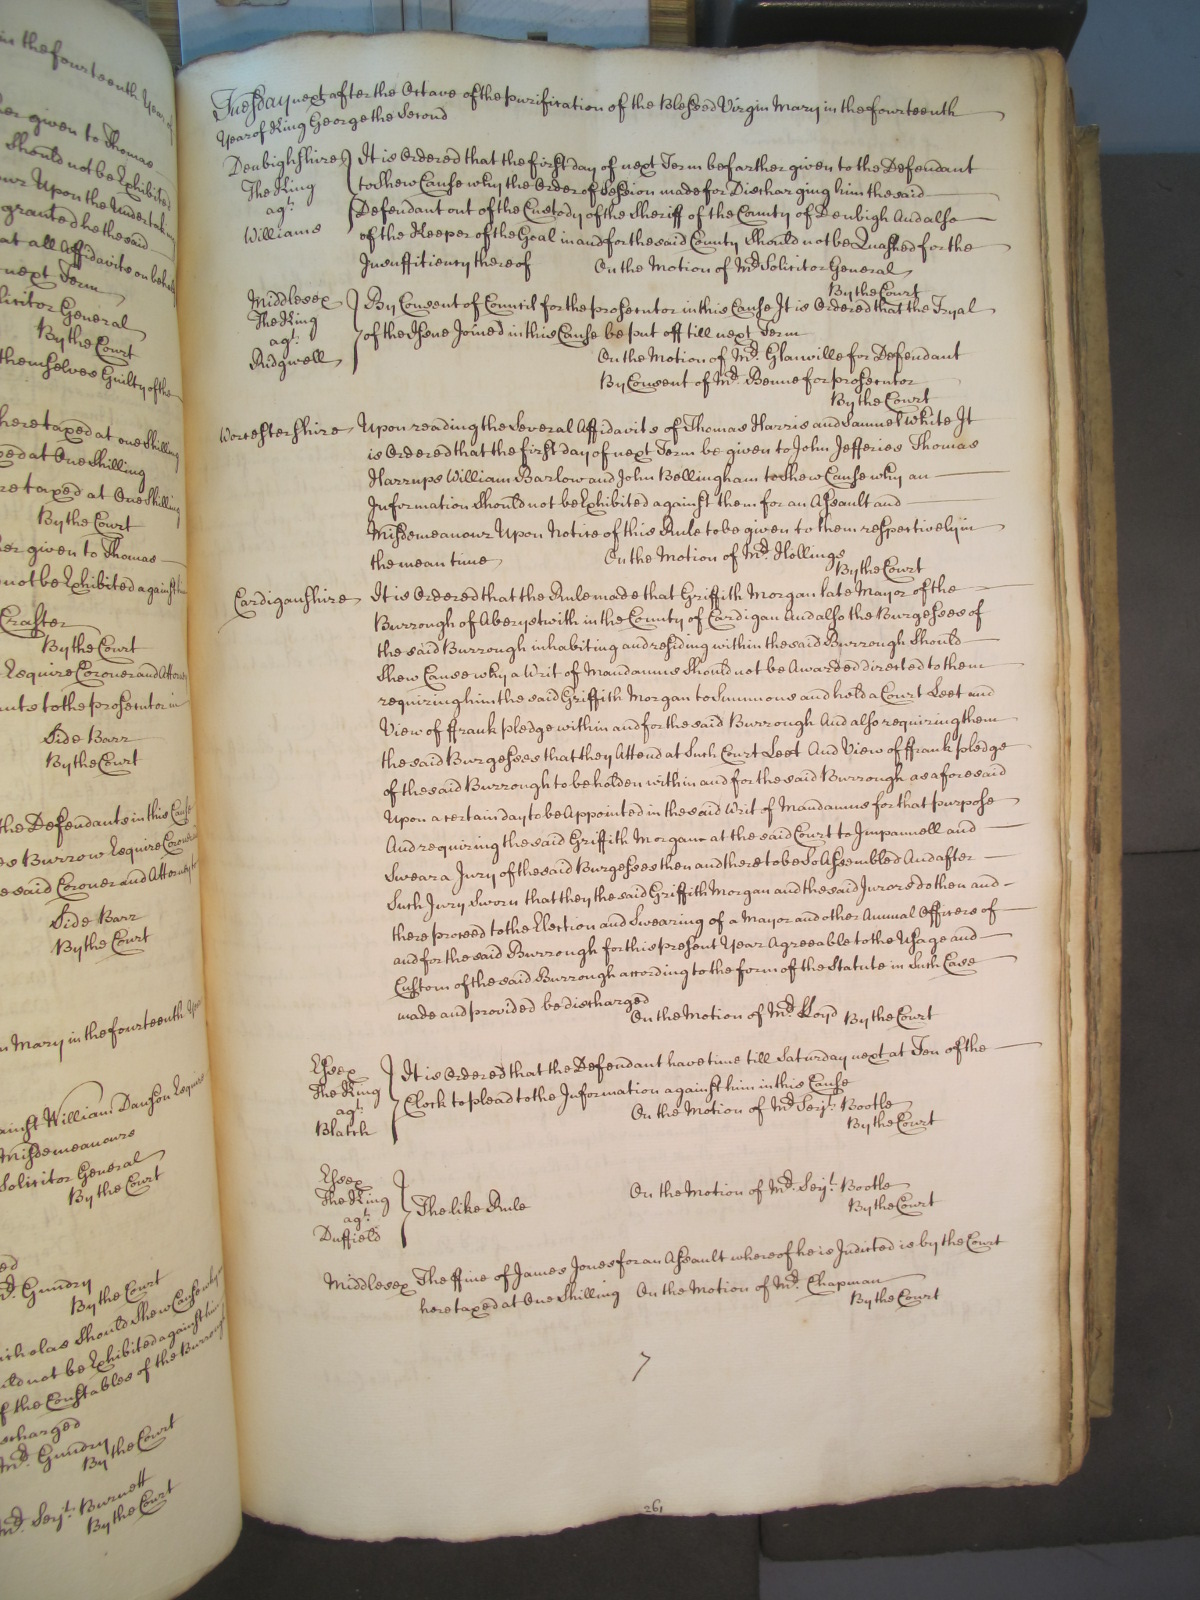 in the fourteenth Year of
her given to Thomas
should not be Exhibited
our Upon the undertaking
granted he the said
at all Affidavits on behalf
next Term
licitor General
By the Court
themselves Guilty of the
here taxed at one Shilling
xed at One Shilling
re taxed at One Shilling
By the Court
her given to Thomas
not be Exhibited against
Crafter
By the Court
Esquire Coroner and Attorney
ants to the prosecutor in
Side Barr
By the Court
the Defendants in this Cause
es Burrow Esquire Coroner
e said Coroner and Attorney
Side Barr
By the Court
n Mary in the fourteenth Year
ainst William Dawson Esquire
Misdemeanours
Solicitor General
By the Court
ed
Mr. Gundry
By the Court
icholas should shew Cause why
uld not be Exhibited against him
f the Constables of the Burrough
scharged
Mr. Gundry
By the Court
Mr. Serjt. Burnett
By the Court
Tuesday next after the Octave of the purification of the Blessed Virgin Mary in the fourteenth
Year of King George the Second
Denbighshire It is Ordered that the first day of next Term be farther given to the Defendant
The King to Shew Cause why the Order of Session made for Discharging him the said
agt. Defendant out of the Custody of the Sheriff of the County of Denbigh And also
Williams of the Keeper of the Goal in and for the said County should not be Quashed for the
Insufficiency thereof On the Motion of Mr. Solicitor General
By the Court
Middlesex By Consent of Council for the prosecutor in this Cause It is Ordered that the Tryal
The King
agt. of the Issue Joined in this Cause be put off till next Term
Ridgwell On the Motion of Mr. Glanville for Defendant
By Consent of Mr. Benne for prosecutor
By the Court
Worcestershire Upon reading the several Affidavits of Thomas Harris and Samuel White It
is Ordered that the first day of next Term be given to John Jefferies Thomas
Harrups William Barlow and John Bellingham to Shew Cause why an
Information should not be Exhibited against them for an Assault and
Misdemeanour Upon Notice of this Rule to be given to them respectively in
the mean time On the Motion of Mr. Hollings
By the Court
Cardiganshire It is Ordered that the Rule made that Griffith Morgan late Mayor of the
Burrough of Aberystwith in the County of Cardigan And also the Burgesses of
the said Burrough inhabiting and residing within the said Burrough Should
Shew Cause why a Writ of Mandamus should not be Awarded directed to them
requiring him the said Griffith Morgan to Summons and hold a Court Leet and
View of ffrank pledge within and for the said Burrough And also requiring them
the said Burgesses that they Attend at such Court Leet And View of ffrank pledge
of the said Burrough to be holden within and for the said Burrough as aforesaid
Upon a certain day to be Appointed in the said Writ of Mandamus for that purpose
And requiring the said Griffith Morgan at the said Court to Impannell and
Swear a Jury of the said Burgesses then and there to be So Assembled And after
Such Jury Sworn that they the said Griffith Morgan and the said Jurors do then and
there proceed to the Election and Swearing of a Mayor and other Annual Officers of
and for the said Burrough for this present Year Agreeable to the Usage and
Custom of the said Burrough according to the form of the Statute in Such Case
made and provided be discharged
On the Motion of Mr. Lloyd By the Court
Essex It is Ordered that the Defendant have time till Saturday next at Ten of the
The King
agt. Clock to plead to the Information against him in this Cause
Blatch On the Motion of Mr. Serjt. Bootle
By the Court
Essex
The King The like Rule On the Motion of Mr. Serjt. Bootle
agt. By the Court
Duffield
Middlesex The ffine of James Jones for an Assault whereof he is Indicted is by the Court
here taxed at One Shilling On the Motion of Mr. Chapman
By the Court
7
261